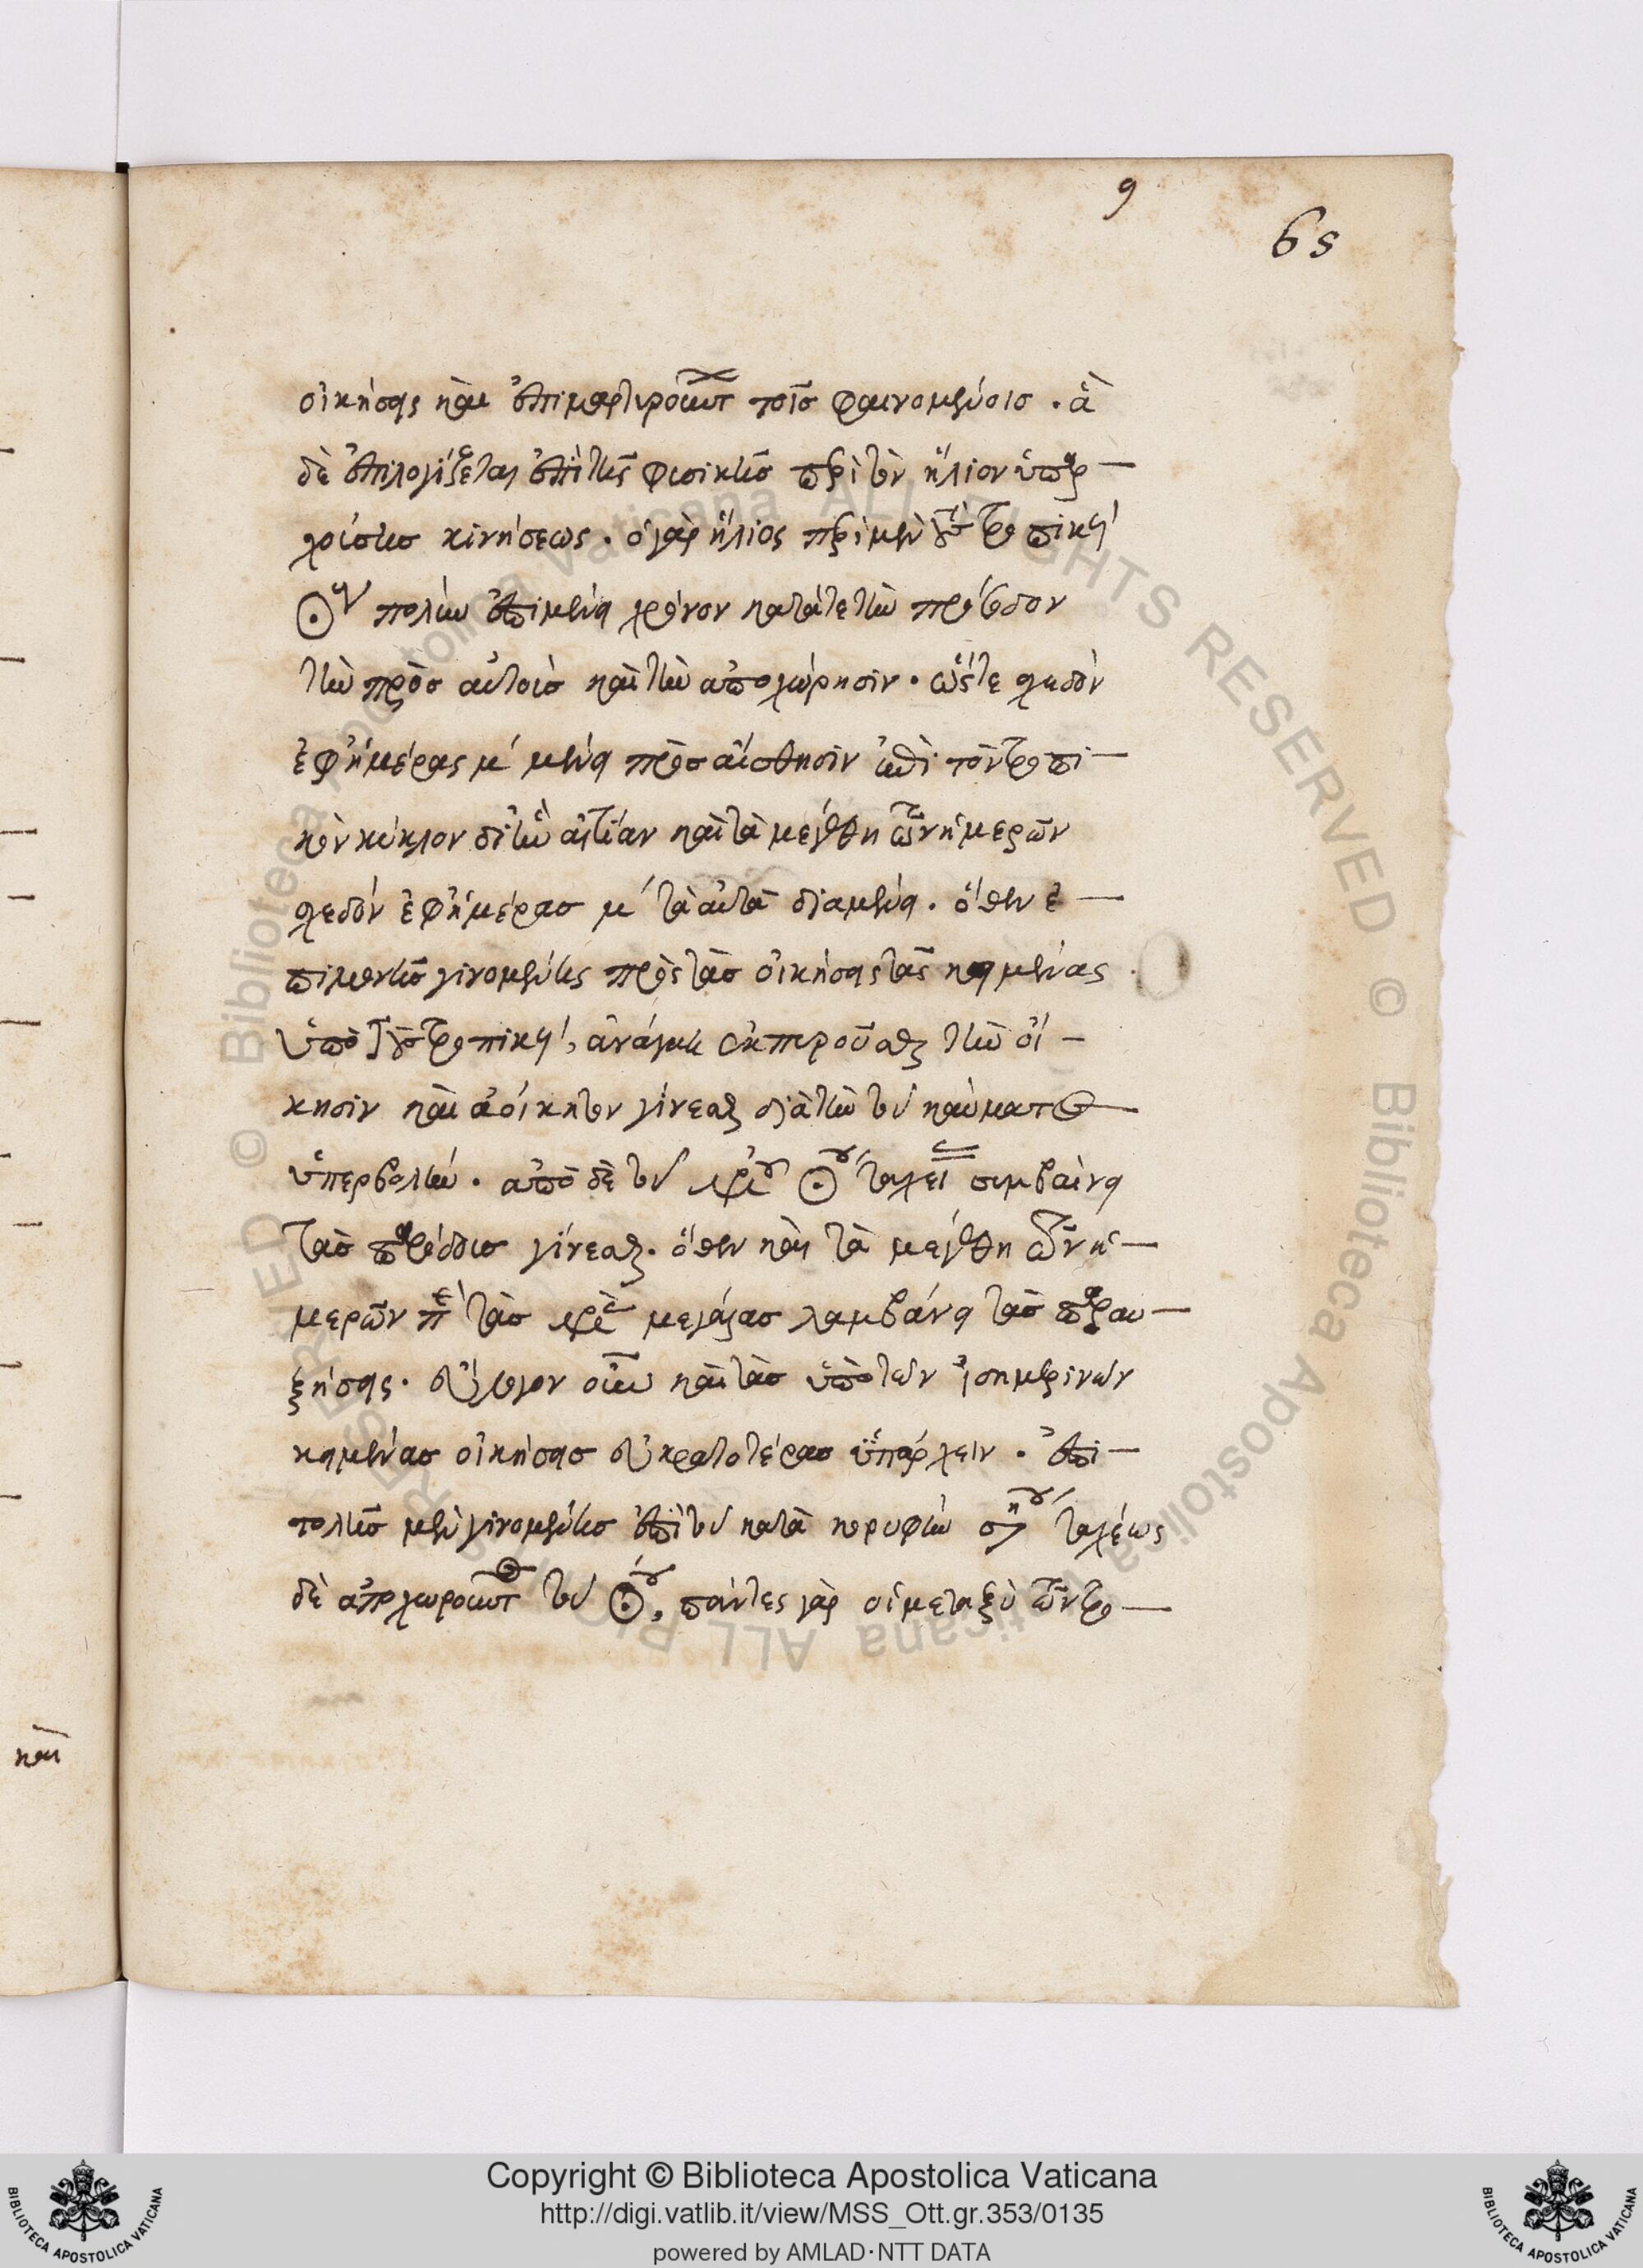 9
65
οἰκήσεις καὶ ἐπιμαρτυροῦντ τοῖς φαινομένοις . ἃ
δὲ ἐπιλογίζεται ἐπὶ τῆς φυσικῆς περὶ τὸν ἥλιον ὑπαρ
χούσης κινήσεως . ὁ γὰρ ἥλιος περὶ μὲν τοὺς τροπικοὺς
πολὺν ἐπιμένει χρόνον κατά τε τὴν πρόσοδον
τὴν πρὸς αὐτοὺς καὶ τὴν ἀποχώρησιν . ὥστε σχεδὸν
ἐφ ἡμέρας μ´ μένει πρὸς αἴσθησιν ἐπὶ τὸν τροπι
κὸν κύκλον δι ἣν αἰτίαν καὶ τὰ μεγέθη τῶν ἡμερῶν
σχεδὸν ἐφ ἡμέρας μ´ τὰ αὐτὰ διαμένει . ὅθεν ἐ
πιμονῆς γινομένης πρὸς τὰς οἰκήσεις τὰς κειμένας
ὑπὸ τοὺς τροπικοὺς, ἀνάγκη ἐκπυροῦσθαι τὴν οἴ
κησιν καὶ ἀοίκητον γίνεσθαι διὰ τὴν τοῦ καύματος
ὑπερβολήν . ἀπὸ δὲ τοῦ ἰσημερινοῦ ☉ ταχείας συμβαίνει
τὰς παρόδους γίνεσθαι . ὅθεν καὶ τὰ μεγέθη τῶν ἡ
μερῶν περὶ τὰς ἰσημερίας μεγάλας λαμβάνει τὰς παραυ
ξήσεις . εὔλογον οὖν καὶ τὰς ὑπὸ τὸν ἰσημερινὸν
κειμένας οἰκήσεις εὐκρατοτέρας ὑπάρχειν . ἐπι
τολῆς μὲν γινομένης ἐπὶ τοῦ κατὰ κορυφὴν σημείου ταχέως
δὲ ἀποχωροῦντος τοῦ ☉, πάντες γὰρ οἱ μεταξὺ τῶν τρο
καὶ
Copyright © Biblioteca Apostolica Vaticana
http://digi.vatlib.it/view/MSS_Ott.gr.353/0135
powered by AMLAD·NTT DATA